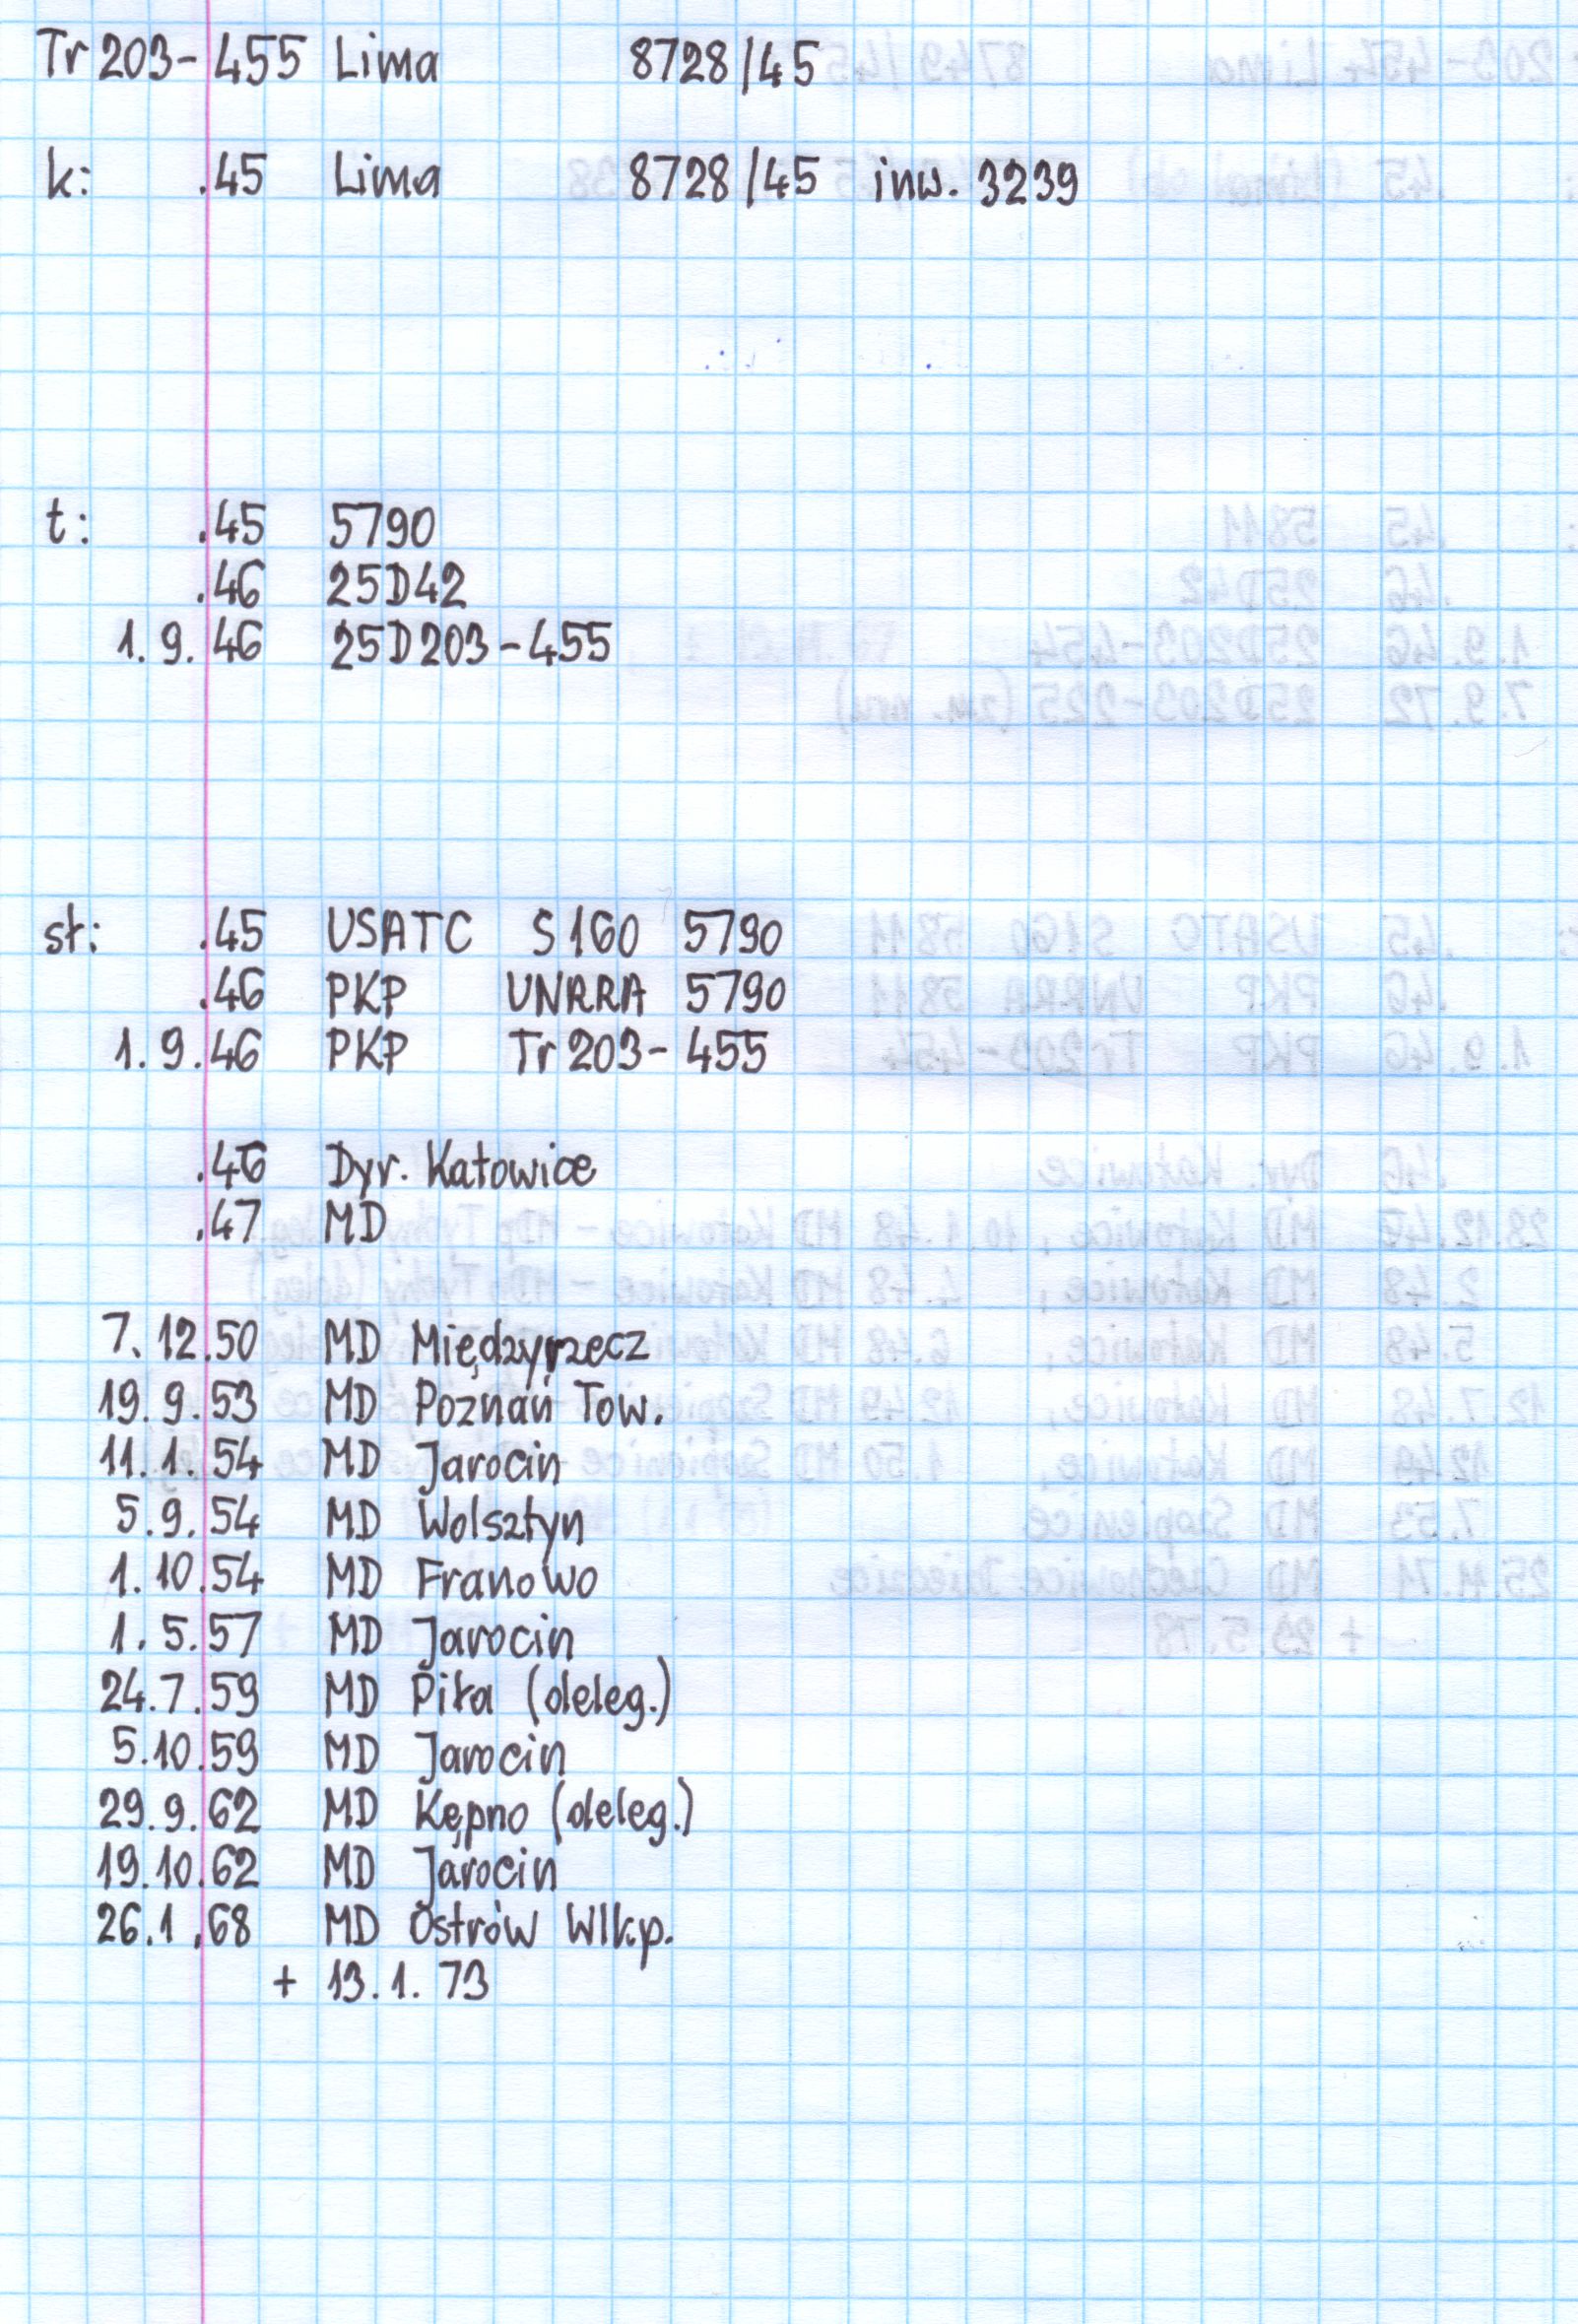 Tr 203-455 Lima 8728/45
k: .45 Lima 8728/45 inw. 3239
t: .45 5790
.46 25D42
1.9.46 25D203-455
st: .45 USATC S160 5790
.46 PKP UNRRA 5790
1.9.46 PKP Tr 203-455
.46 Dyr. Katowice
.47 MD
7.12.50 MD Międzyrzecz
19.9.53 MD Poznań Tow.
11.1.54 MD Jarocin
5.9.54 MD Wolsztyn
1.10.54 MD Franowo
1.5.57 MD Jarocin
24.7.59 MD Piła (deleg.)
5.10.59 MD Jarocin
29.9.62 MD Kępno (deleg.)
19.10.62 MD Jarocin
26.1.68 MD Ostrów Wlkp.
+ 13.1.73